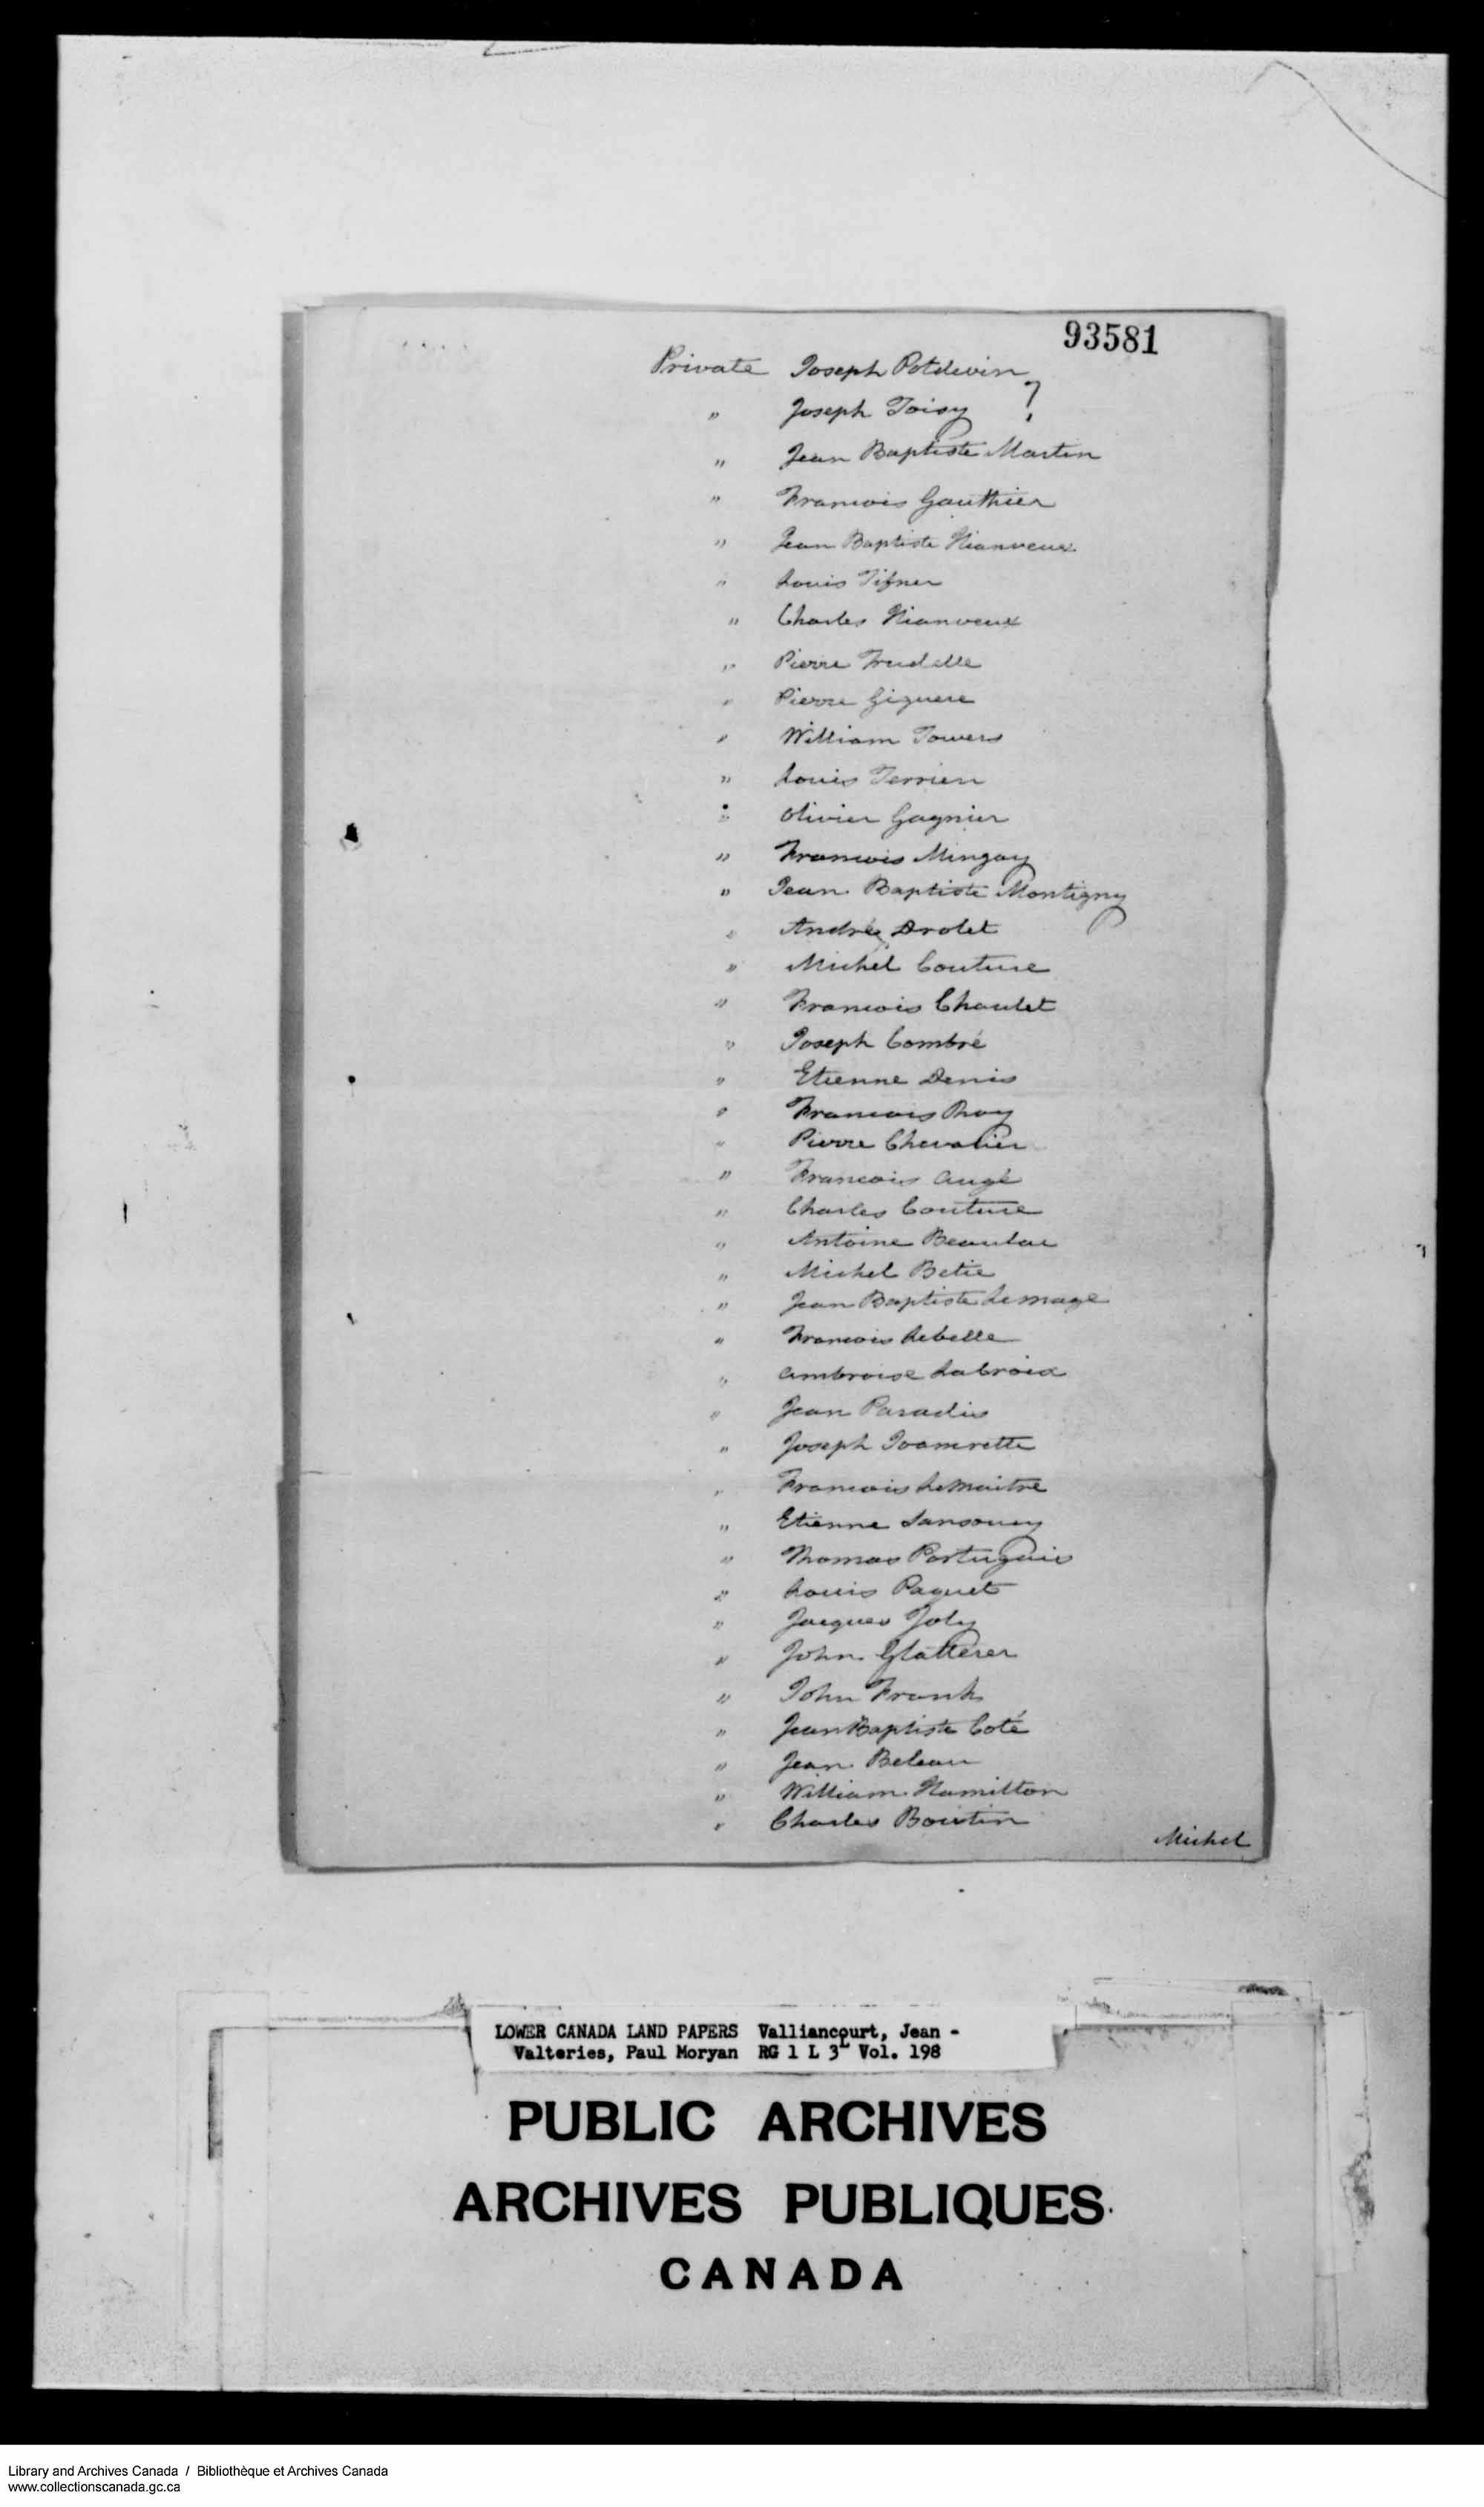 93581
Private Joseph Potdevin
" Joseph Toisy ?
" Jean Baptiste Martin
" Francois Gauthier
" Jean Baptiste Nianveux
" Louis Tifner
" Charles Nianveux
" Pierre Trudelle
" Pierre Giguere
" William Towers
" Louis Terrien
" Olivier Gagnier
" Francois Mingay
" Jean Baptiste Montigny
" André Drolet
" Michel Couture
" Francois Choulet
" Joseph Combré
" Etienne Denis
" Francois Roy
" Pierre Chevalier
" Francois Augé
" Charles Couture
" Antoine Beaulac
" Michel Betie
" Jean Baptiste Lemage
" Francois Lebelle
" Ambroise Labroix
" Jean Paradis
" Joseph
" Francois Lemaitre
" Etienne Sansoucy
" Thomas Portugais
" Louis Paquet
" Jacques Joly
" John Glatterer
" John Frank
" Jean Baptiste Coté
" Jean Beleau
" William Hamilton
" Charles Boutin
Michel
LOWER CANADA LAND PAPERS Valliancourt, Jean -
Valteries, Paul Moryan RG 1 L 3L Vol. 198
PUBLIC ARCHIVES
ARCHIVES PUBLIQUES
CANADA
Library and Archives Canada / Bibliothèque et Archives Canada
www.collectionscanada.gc.ca